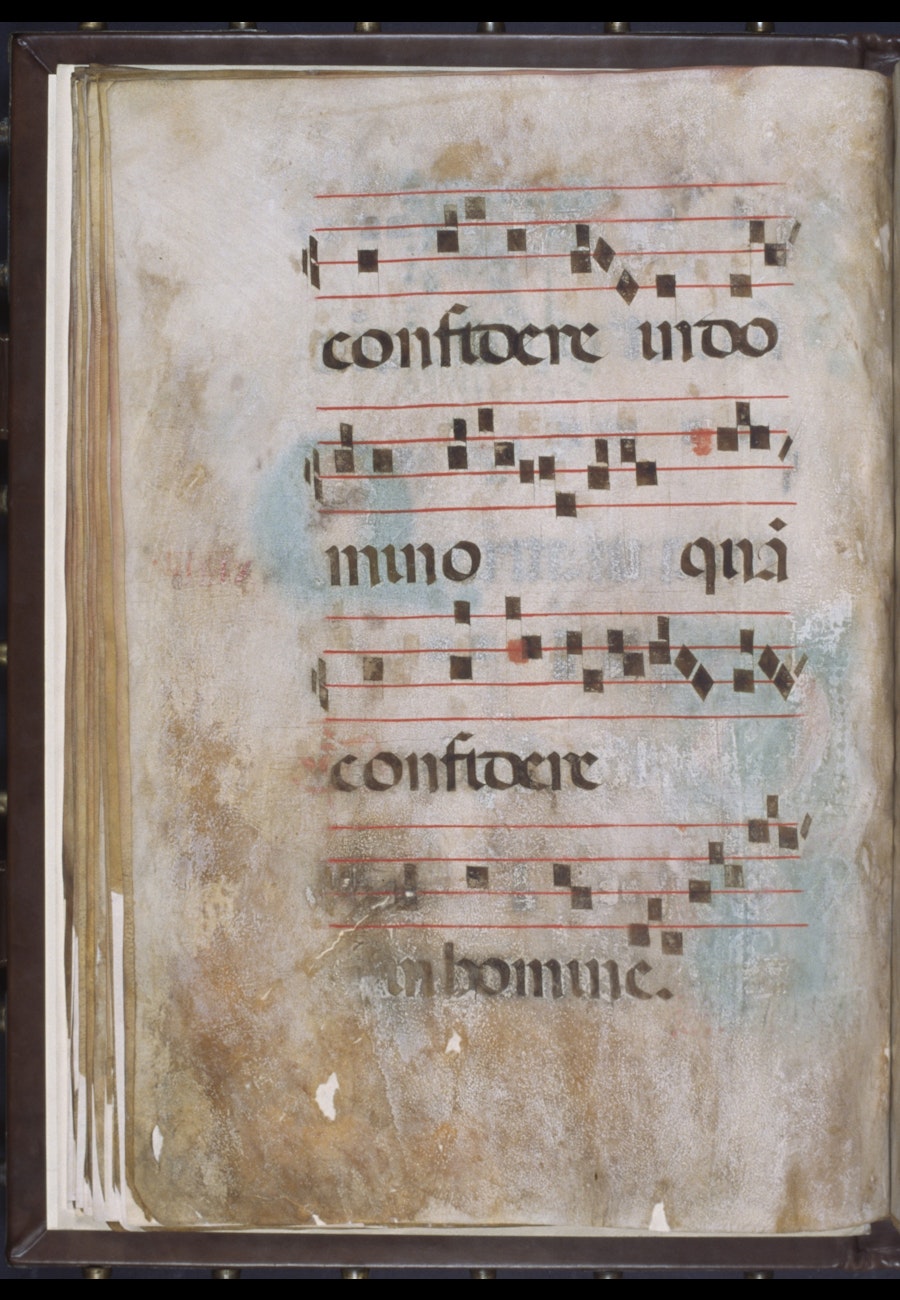 confidere in do
mino quã
confidere
in homine.